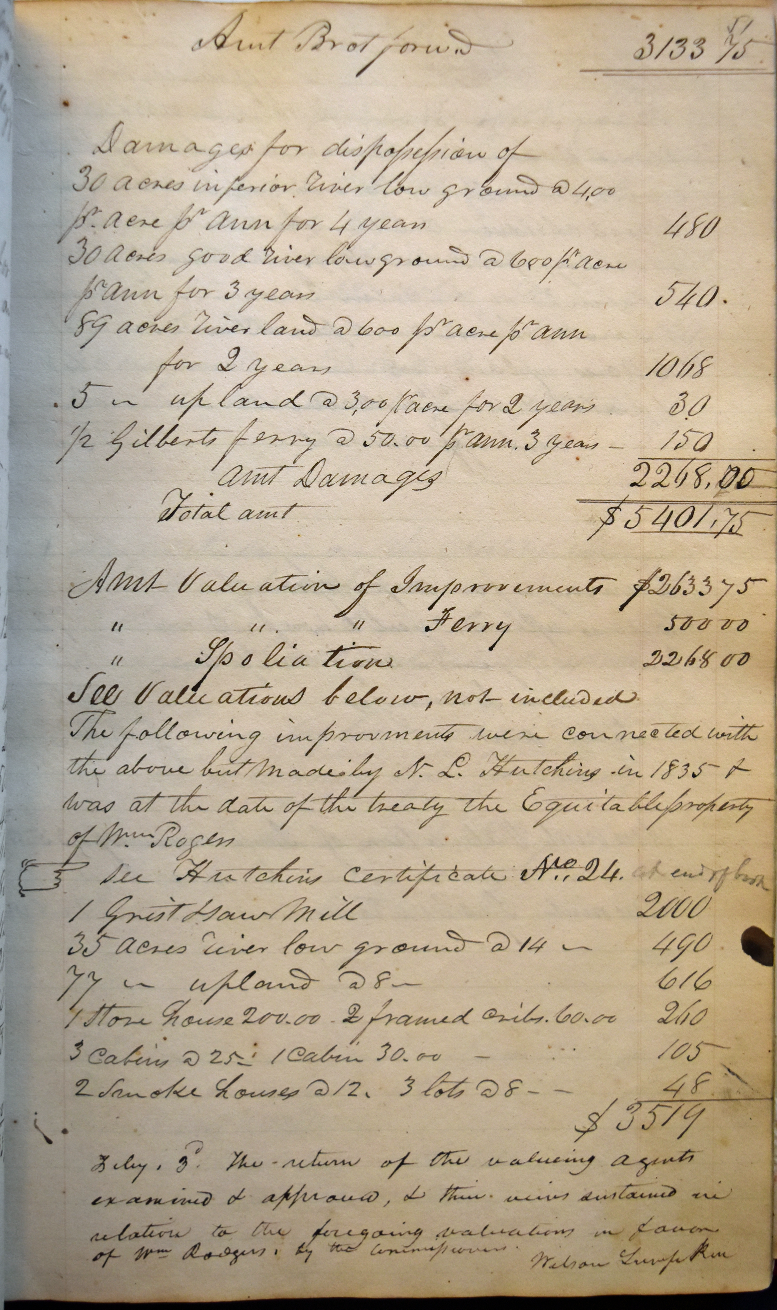 Amt Brot forwd 3133 75
Damages for dispossession of
30 acres inferior river low ground @ 4,00
pr acre pr ann for 4 years 480
30 acres good river low ground @ 600 pr acre
pr ann for 3 years 540.
89 acres river land @ 600 pr acre pr ann
for 2 years 1068
5 " up land @ 3,00 pr acre for 2 years 30
1/2 Gilberts ferry @ 50.00 pr ann. 3 years - 150
Amt Damages 2268,00
Total amt $5401,75
Amt Valuation of Improvements $2633 75
" " " Ferry 500 00
" Spoliation 2268 00
See Valuations below, not included
The following improvments were connected with
the above but made by N. L. Hutchins in 1835 &
was at the date of the treaty the Equitable property
of Wm Rogers
see Hutchins certificate No. 24. at end of book
1 Grist & saw Mill 2000
35 acres river low ground @ 14 " 490
77 " upland @ 8 - 616
1 Store house 200.00 - 2 framed cribs. 60.00 260
3 cabins @ 25 - 1 cabin 30.00 - 105
2 smoke houses @ 12. 3 lots @ 8 - - 48
$ 3519
Feby. 3d. The return of the valueing agents
examined & approved, & their views sustained in
relation to the foregoing valuations in favor
of Wm Rodgers. by the Commissioners.
Wilson Lumpkin